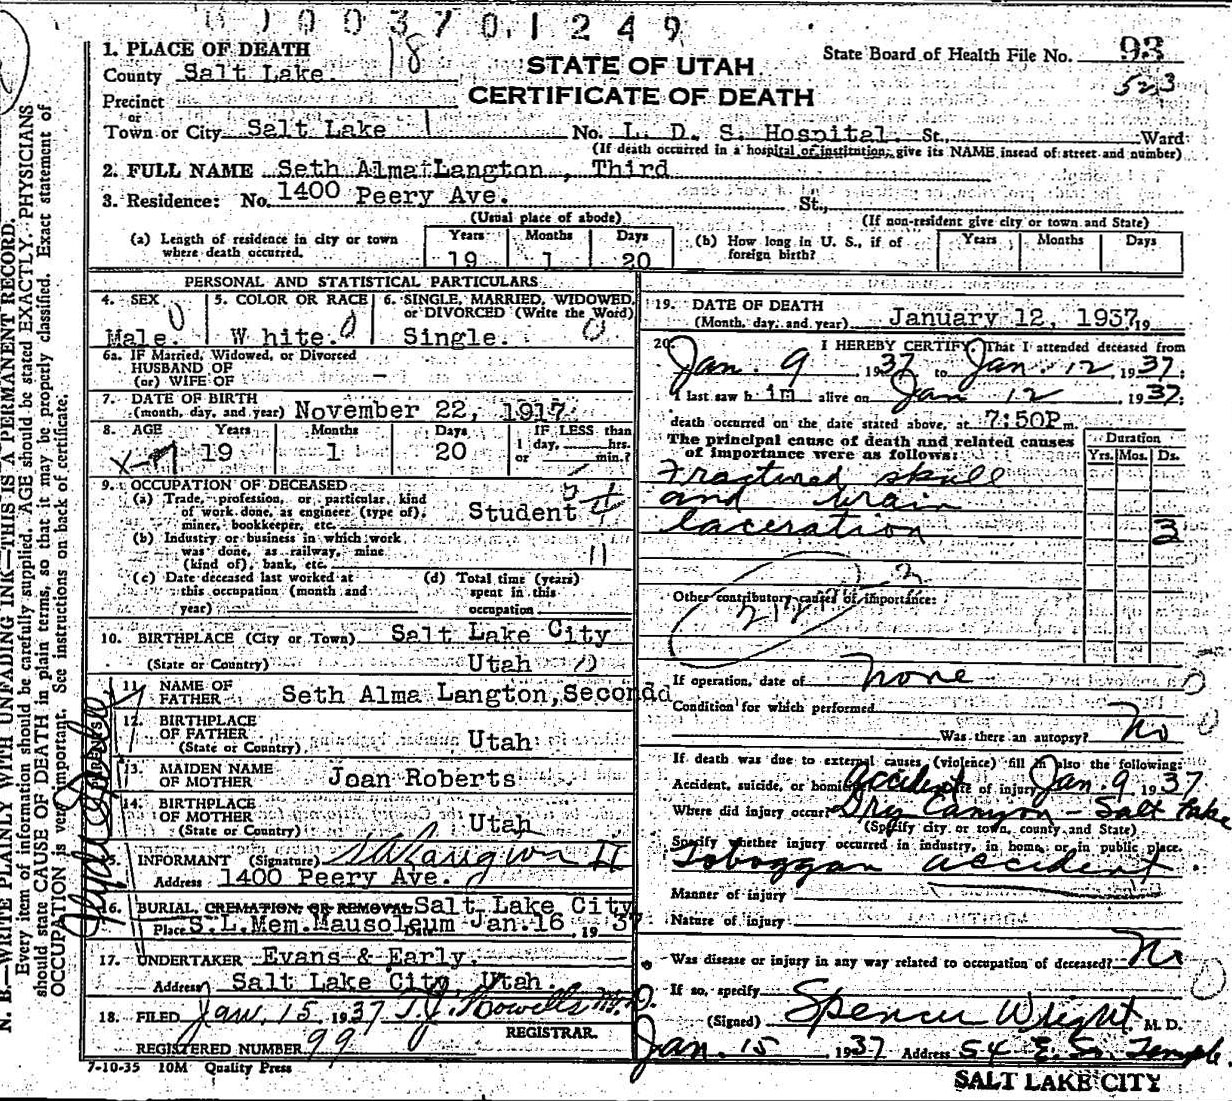 0 0 3 7 0 1 2 4 9
1. PLACE OF DEATH
County Salt Lake. 18
STATE OF UTAH
CERTIFICATE OF DEATH
State Board of Health File No. 93
523
Precinct
or
Town or City Salt Lake No. L. D. S. Hospital. St., Ward
(If death occurred in a hospital or institution, give its NAME insead of street and number)
2. FULL NAME Seth Alma Langton, Third
3. Residence: No. 1400 Peery Ave. St.,
(Usual place of abode) (If non-resident give city or town and State)
(a) Length of residence in city or town where death occurred. Years 19 Months 1 Days 20
(b) How long in U. S., if of foreign birth? Years Months Days
PERSONAL AND STATISTICAL PARTICULARS
4. SEX Male. 5. COLOR OR RACE White. 6. SINGLE, MARRIED, WIDOWED, or DIVORCED (Write the Word) Single.
6a. IF Married, Widowed, or Divorced
HUSBAND OF
(or) WIFE OF -
7. DATE OF BIRTH
(month, day, and year) November 22, 1917
8. AGE Years 19 Months 1 Days 20 IF LESS than 1 day, hrs. or min.?
9. OCCUPATION OF DECEASED
(a) Trade, profession, or particular kind of work done, as engineer (type of), miner, bookkeeper, etc. Student
(b) Industry or business in which work was done, as railway, mine (kind of), bank, etc. 11
(c) Date deceased last worked at this occupation (month and year)
(d) Total time (years) spent in this occupation
10. BIRTHPLACE (City or Town) Salt Lake City
(State or Country) Utah
11. NAME OF FATHER Seth Alma Langton, Secondd
12. BIRTHPLACE OF FATHER
(State or Country) Utah
13. MAIDEN NAME OF MOTHER Joan Roberts
14. BIRTHPLACE OF MOTHER
(State or Country) Utah
15. INFORMANT (Signature) S A Langton II
Address 1400 Peery Ave.
16. BURIAL CREMATION OR REMOVAL Salt Lake City
Place S.L.Mem.Mausoleum Date Jan.16, 1937
17. UNDERTAKER Evans & Early.
Address Salt Lake City, Utah.
18. FILED Jan. 15, 1937 T.J. Howells M.D.
REGISTRAR.
REGISTERED NUMBER 99
7-10-35 10M Quality Press
19. DATE OF DEATH
(Month, day, and year) January 12, 1937 19
20. I HEREBY CERTIFY, That I attended deceased from
Jan. 9, 1937 to Jan. 12, 1937;
I last saw h im alive on Jan 12, 1937;
death occurred on the date stated above, at 7:50P m.
The principal cause of death and related causes of importance were as follows:
Duration
Yrs. Mos. Ds.
Fractured skull
and brain
laceration 3
Other contributory causes of importance:
If operation, date of none
Condition for which performed
Was there an autopsy? No
If death was due to external causes (violence) fill in also the following:
Accident, suicide, or homicide accident Date of injury Jan. 9 1937
Where did injury occur? Dry Canyon - Salt Lake
(Specify city or town, county and State)
Specify whether injury occurred in industry, in home, or in public place.
Toboggan accident
Manner of injury
Nature of injury
Was disease or injury in any way related to occupation of deceased? No
If so, specify
(Signed) Spencer Wright, M. D.
Jan. 15, 1937 Address 54 E. So. Temple.
SALT LAKE CITY
N. B.—WRITE PLAINLY WITH UNFADING INK—THIS IS A PERMANENT RECORD.
Every item of information should be carefully supplied. AGE should be stated EXACTLY. PHYSICIANS
should state CAUSE OF DEATH in plain terms, so that it may be properly classified. Exact statement of
OCCUPATION is very important. See instructions on back of certificate.